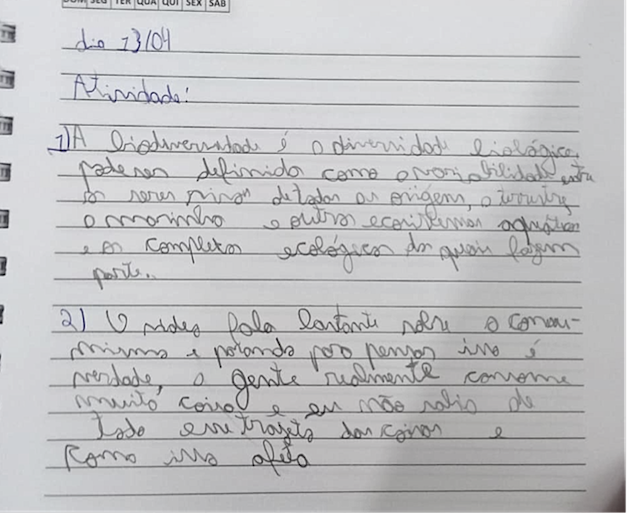 DOM SEG TER QUA QUI SEX SAB
dia 13/04
Atividade:
1) A biodiversidade é a diversidade biológica,
pode ser definida como a variabilidade entre
os seres vivos de todas as origem, a terrestre
a marinha e outros ecossistemas aquáticos
e os complexos ecológicos dos quais fazem
parte.
2) O video fala bastante sobre o consu-
mismo e parando para pensar isso é
verdade, a gente realmente consome
muito coisa e eu não sabia de
todo esse trajeto das coisas e
como isso afeta